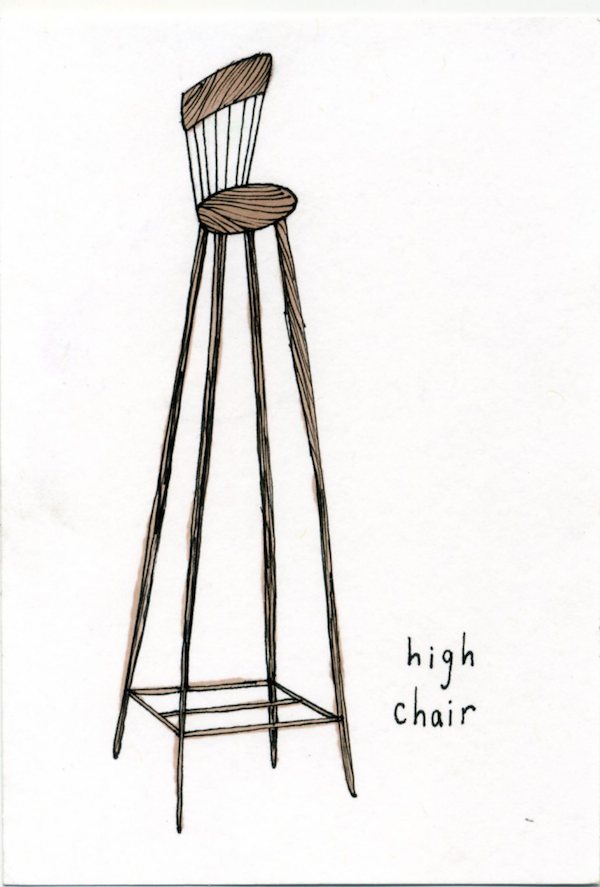 high
chair